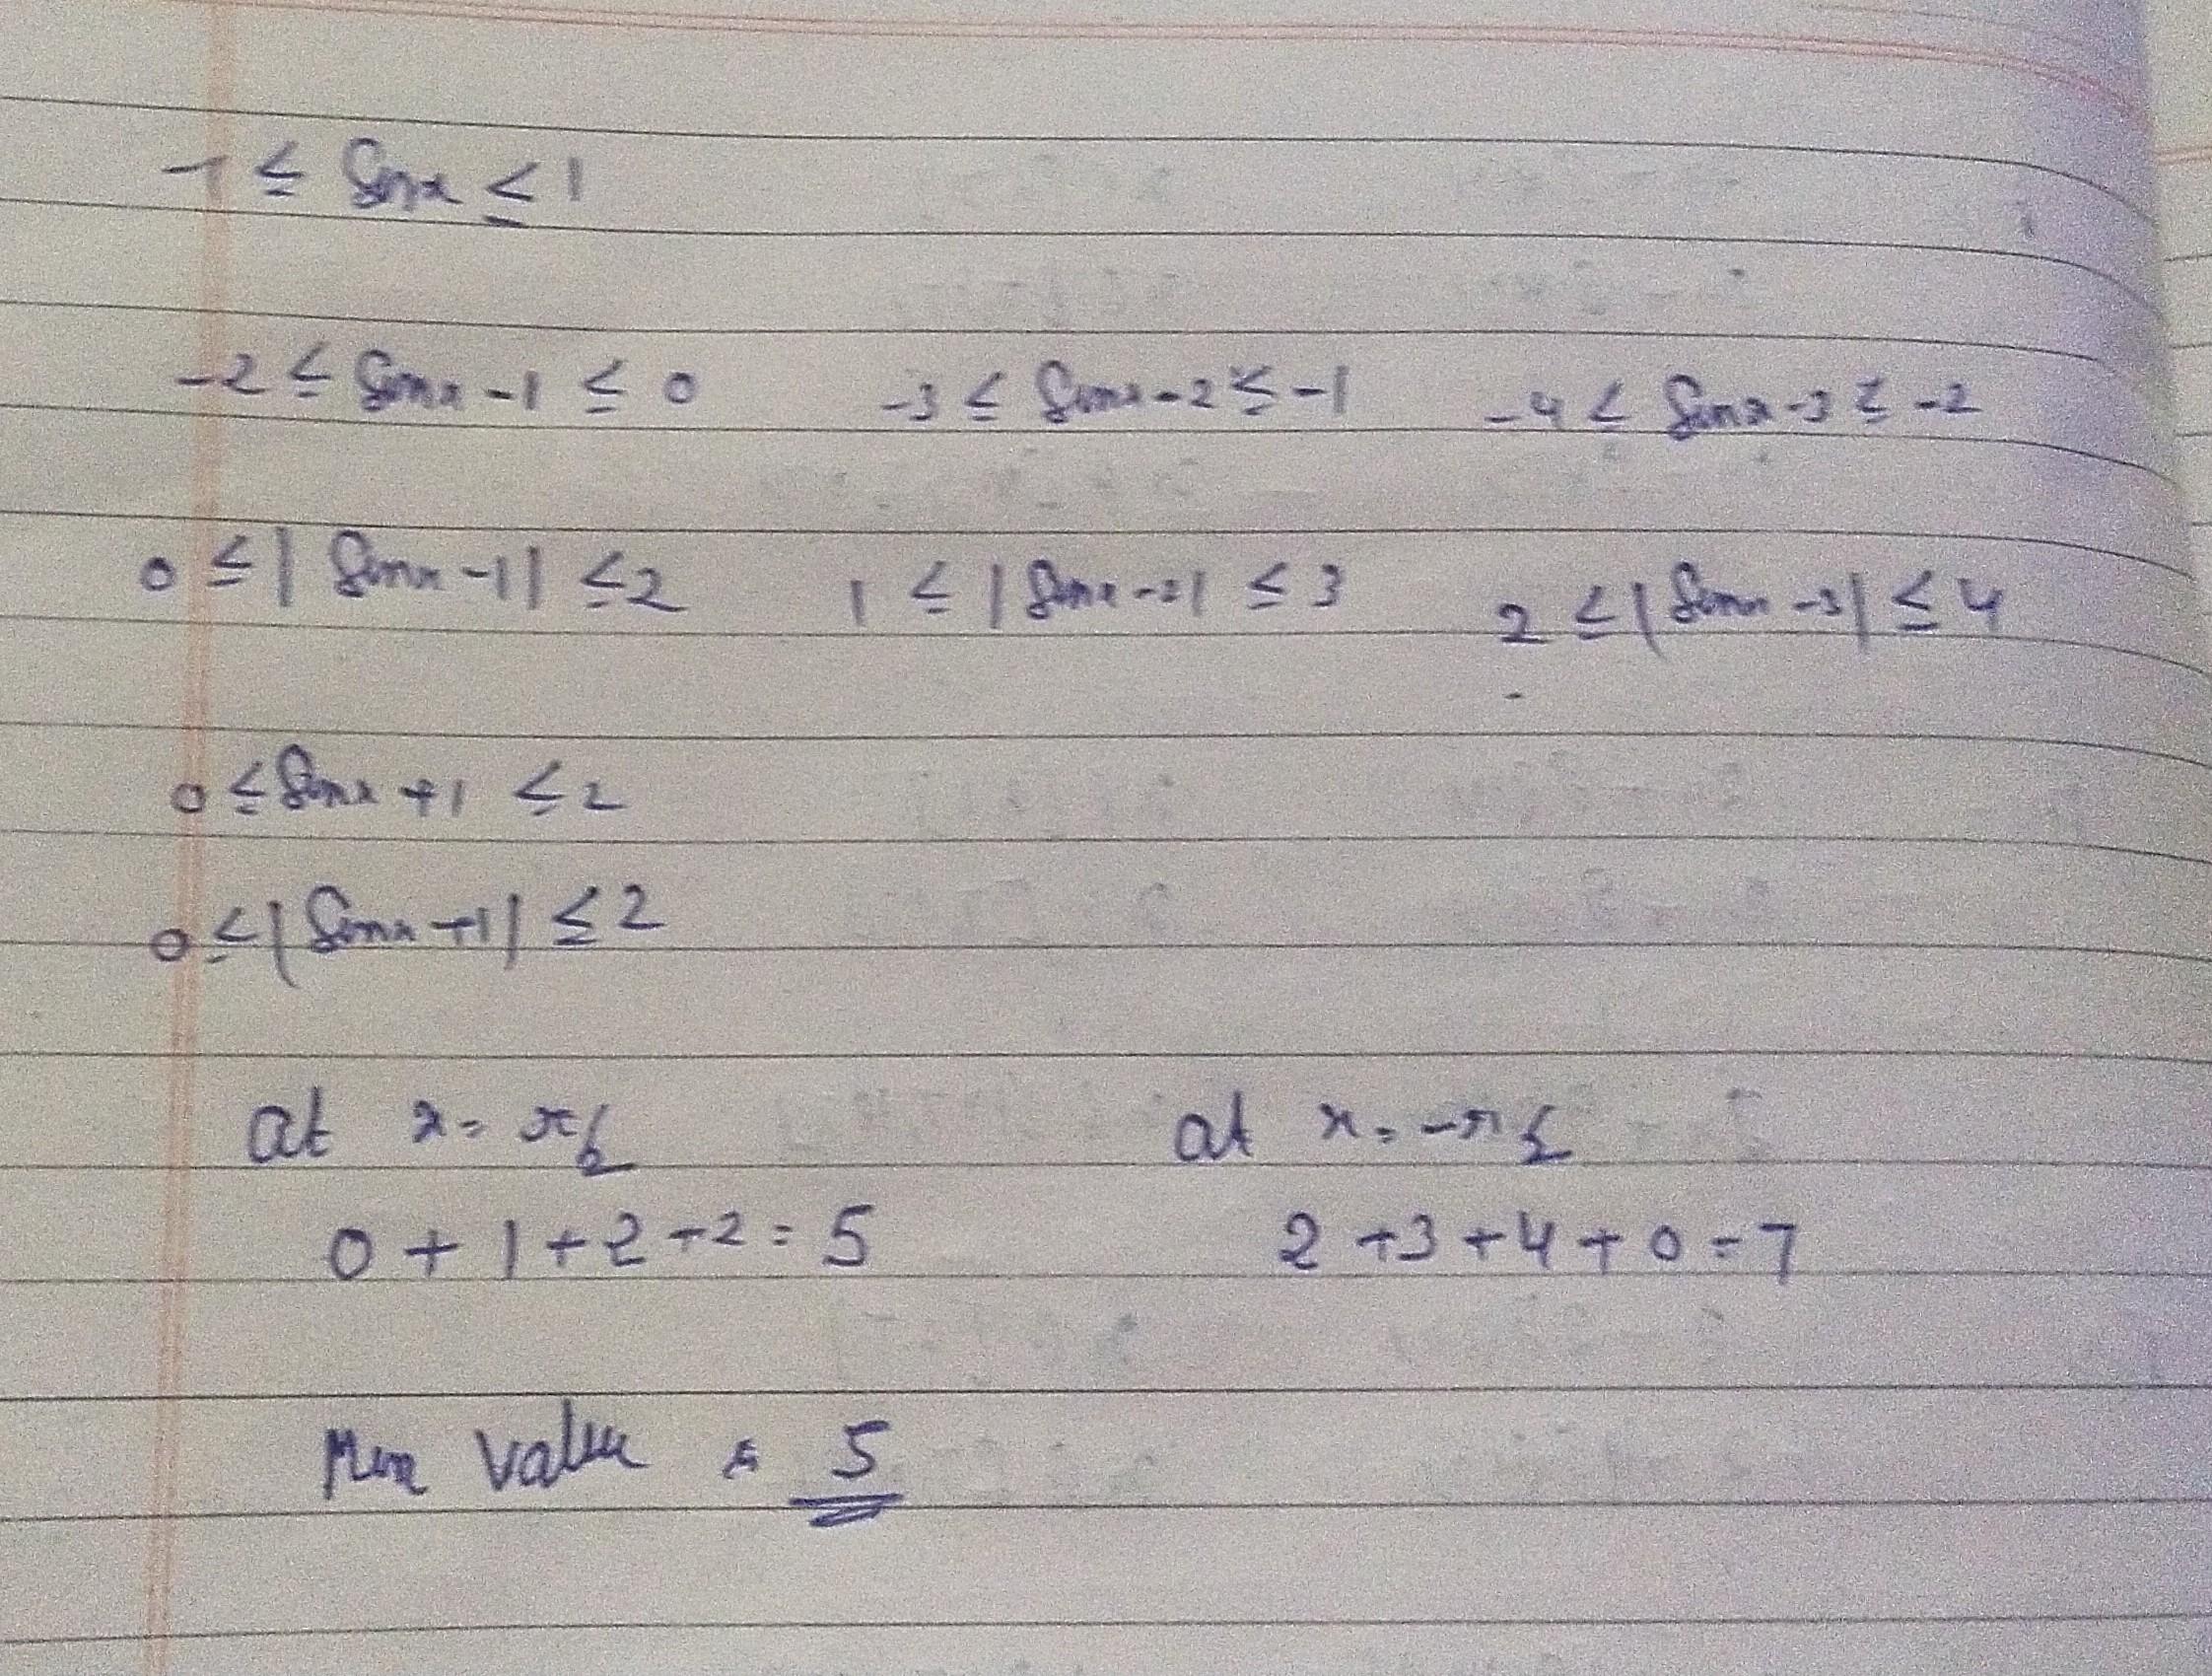 -1 ≤ Sinx ≤ 1
-2 ≤ Sinx -1 ≤ 0 -3 ≤ Sinx-2 ≤ -1 -4 ≤ Sinx-3 ≤ -2
0 ≤ |Sinx -1| ≤ 2 1 ≤ |Sinx-2| ≤ 3 2 ≤ |Sinx -3| ≤ 4
0 ≤ Sinx +1 ≤ 2
0 ≤ |Sinx +1| ≤ 2
at x = π/2 at x = -π/2
0 + 1 + 2 + 2 = 5 2 + 3 + 4 + 0 = 7
Min value = 5